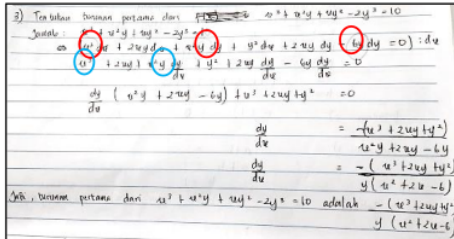 3) Tentukan turunan pertama dari x³ + x²y + xy² - 2y³ = 10
Jawab : x³ + x²y + xy² - 2y³ =
⇔ x³ dx + 2xy dx + x²y dy + y² dx + 2xy dy - 6y dy = 0) : dx
x³ + 2xy + x²y dy/dx + y² + 2xy dy/dx - 6y dy/dx = 0
dy/dx ( x²y + 2xy - 6y ) + x³ + 2xy + y² = 0
dy/dx = -(x³ + 2xy + y²) / x²y + 2xy - 6y
dy/dx = -(x³ + 2xy + y²) / y(x² + 2x - 6)
Jadi, turunan pertama dari x³ + x²y + xy² - 2y³ = 10 adalah -(x³ + 2xy + y² / y(x² + 2x - 6